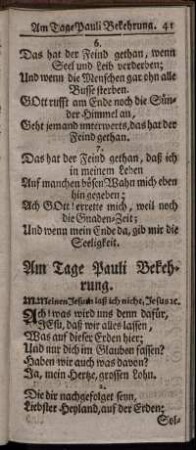 Am Tage Pauli Bekehrung. 41
6.
Das hat der Feind gethan, wenn
Seel und Leib verderben;
Und wenn die Menschen gar ohn alle
Busse sterben.
GOtt rufft am Ende noch die Sün-
der Himmel an,
Geht jemand unterwerts, das hat der
Feind gethan.
7.
Das hat der Feind gethan, daß ich
in meinem Leben
Auf manchen bösen Wahn mich eben
hin gegeben;
Ach GOtt! errette mich, weil noch
die Gnaden-Zeit;
Und wenn mein Ende da, gib mir die
Seeligkeit.
Am Tage Pauli Bekeh-
rung.
M. Meinen Jesum laß ich nicht, Jesus ꝛc.
Ach! was wird uns denn dafür,
JEsu, daß wir alles lassen,
Was auf dieser Erden hier;
Und nur dich im Glauben fassen?
Haben wir auch was davon?
Ja, mein Hertze, grossen Lohn.
2.
Die dir nachgefolget seyn,
Liebster Heyland, auf der Erden;
Sol-